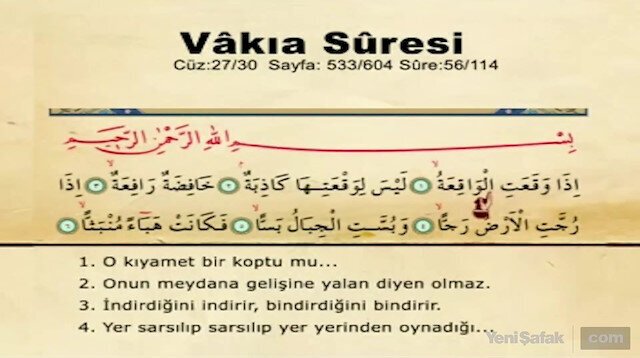 Vâkıa Sûresi
Cüz:27/30 Sayfa: 533/604 Sûre:56/114
بِسْمِ اللهِ الرَّحْمٰنِ الرَّحِيمِ
اِذَا وَقَعَتِ الْوَاقِعَةُ ﴿١﴾ لَيْسَ لِوَقْعَتِهَا كَاذِبَةٌ ﴿٢﴾ خَافِضَةٌ رَافِعَةٌ ﴿٣﴾ اِذَا
رُجَّتِ الْاَرْضُ رَجًّا ﴿٤﴾ وَبُسَّتِ الْجِبَالُ بَسًّا ﴿٥﴾ فَكَانَتْ هَبَٓاءً مُنْبَثًّا ﴿٦﴾
1. O kıyamet bir koptu mu...
2. Onun meydana gelişine yalan diyen olmaz.
3. İndirdiğini indirir, bindirdiğini bindirir.
4. Yer sarsılıp sarsılıp yer yerinden oynadığı...
YeniŞafak.com